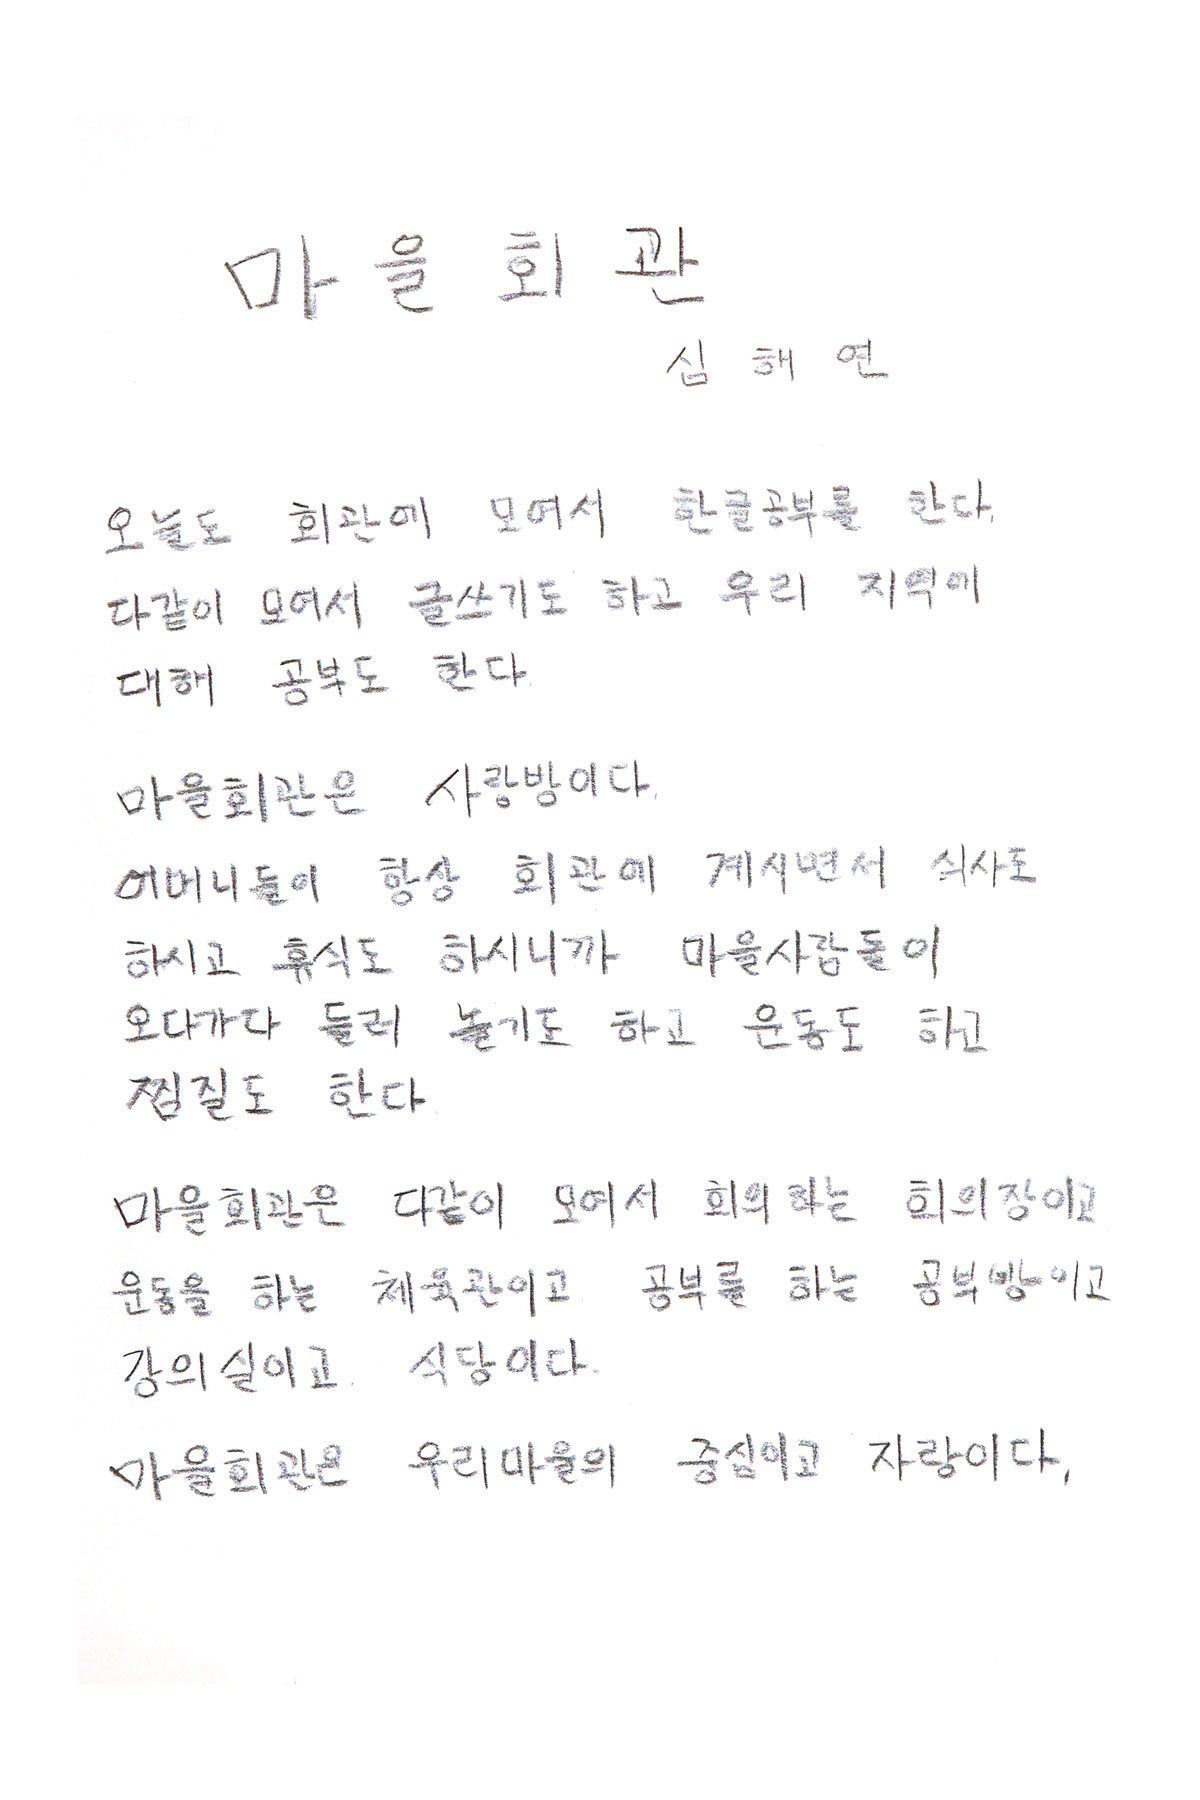 마을회관
심해연
오늘도 회관에 모여서 한글공부를 한다.
다같이 모여서 글쓰기도 하고 우리 지역에
대해 공부도 한다.
마을회관은 사랑방이다.
어머니들이 항상 회관에 계시면서 식사도
하시고 휴식도 하시니까 마을사람들이
오다가다 들러 놀기도 하고 운동도 하고
찜질도 한다
마을회관은 다같이 모여서 회의하는 회의장이고
운동을 하는 체육관이고 공부를 하는 공부방이고
강의실이고 식당이다.
마을회관은 우리마을의 중심이고 자랑이다.